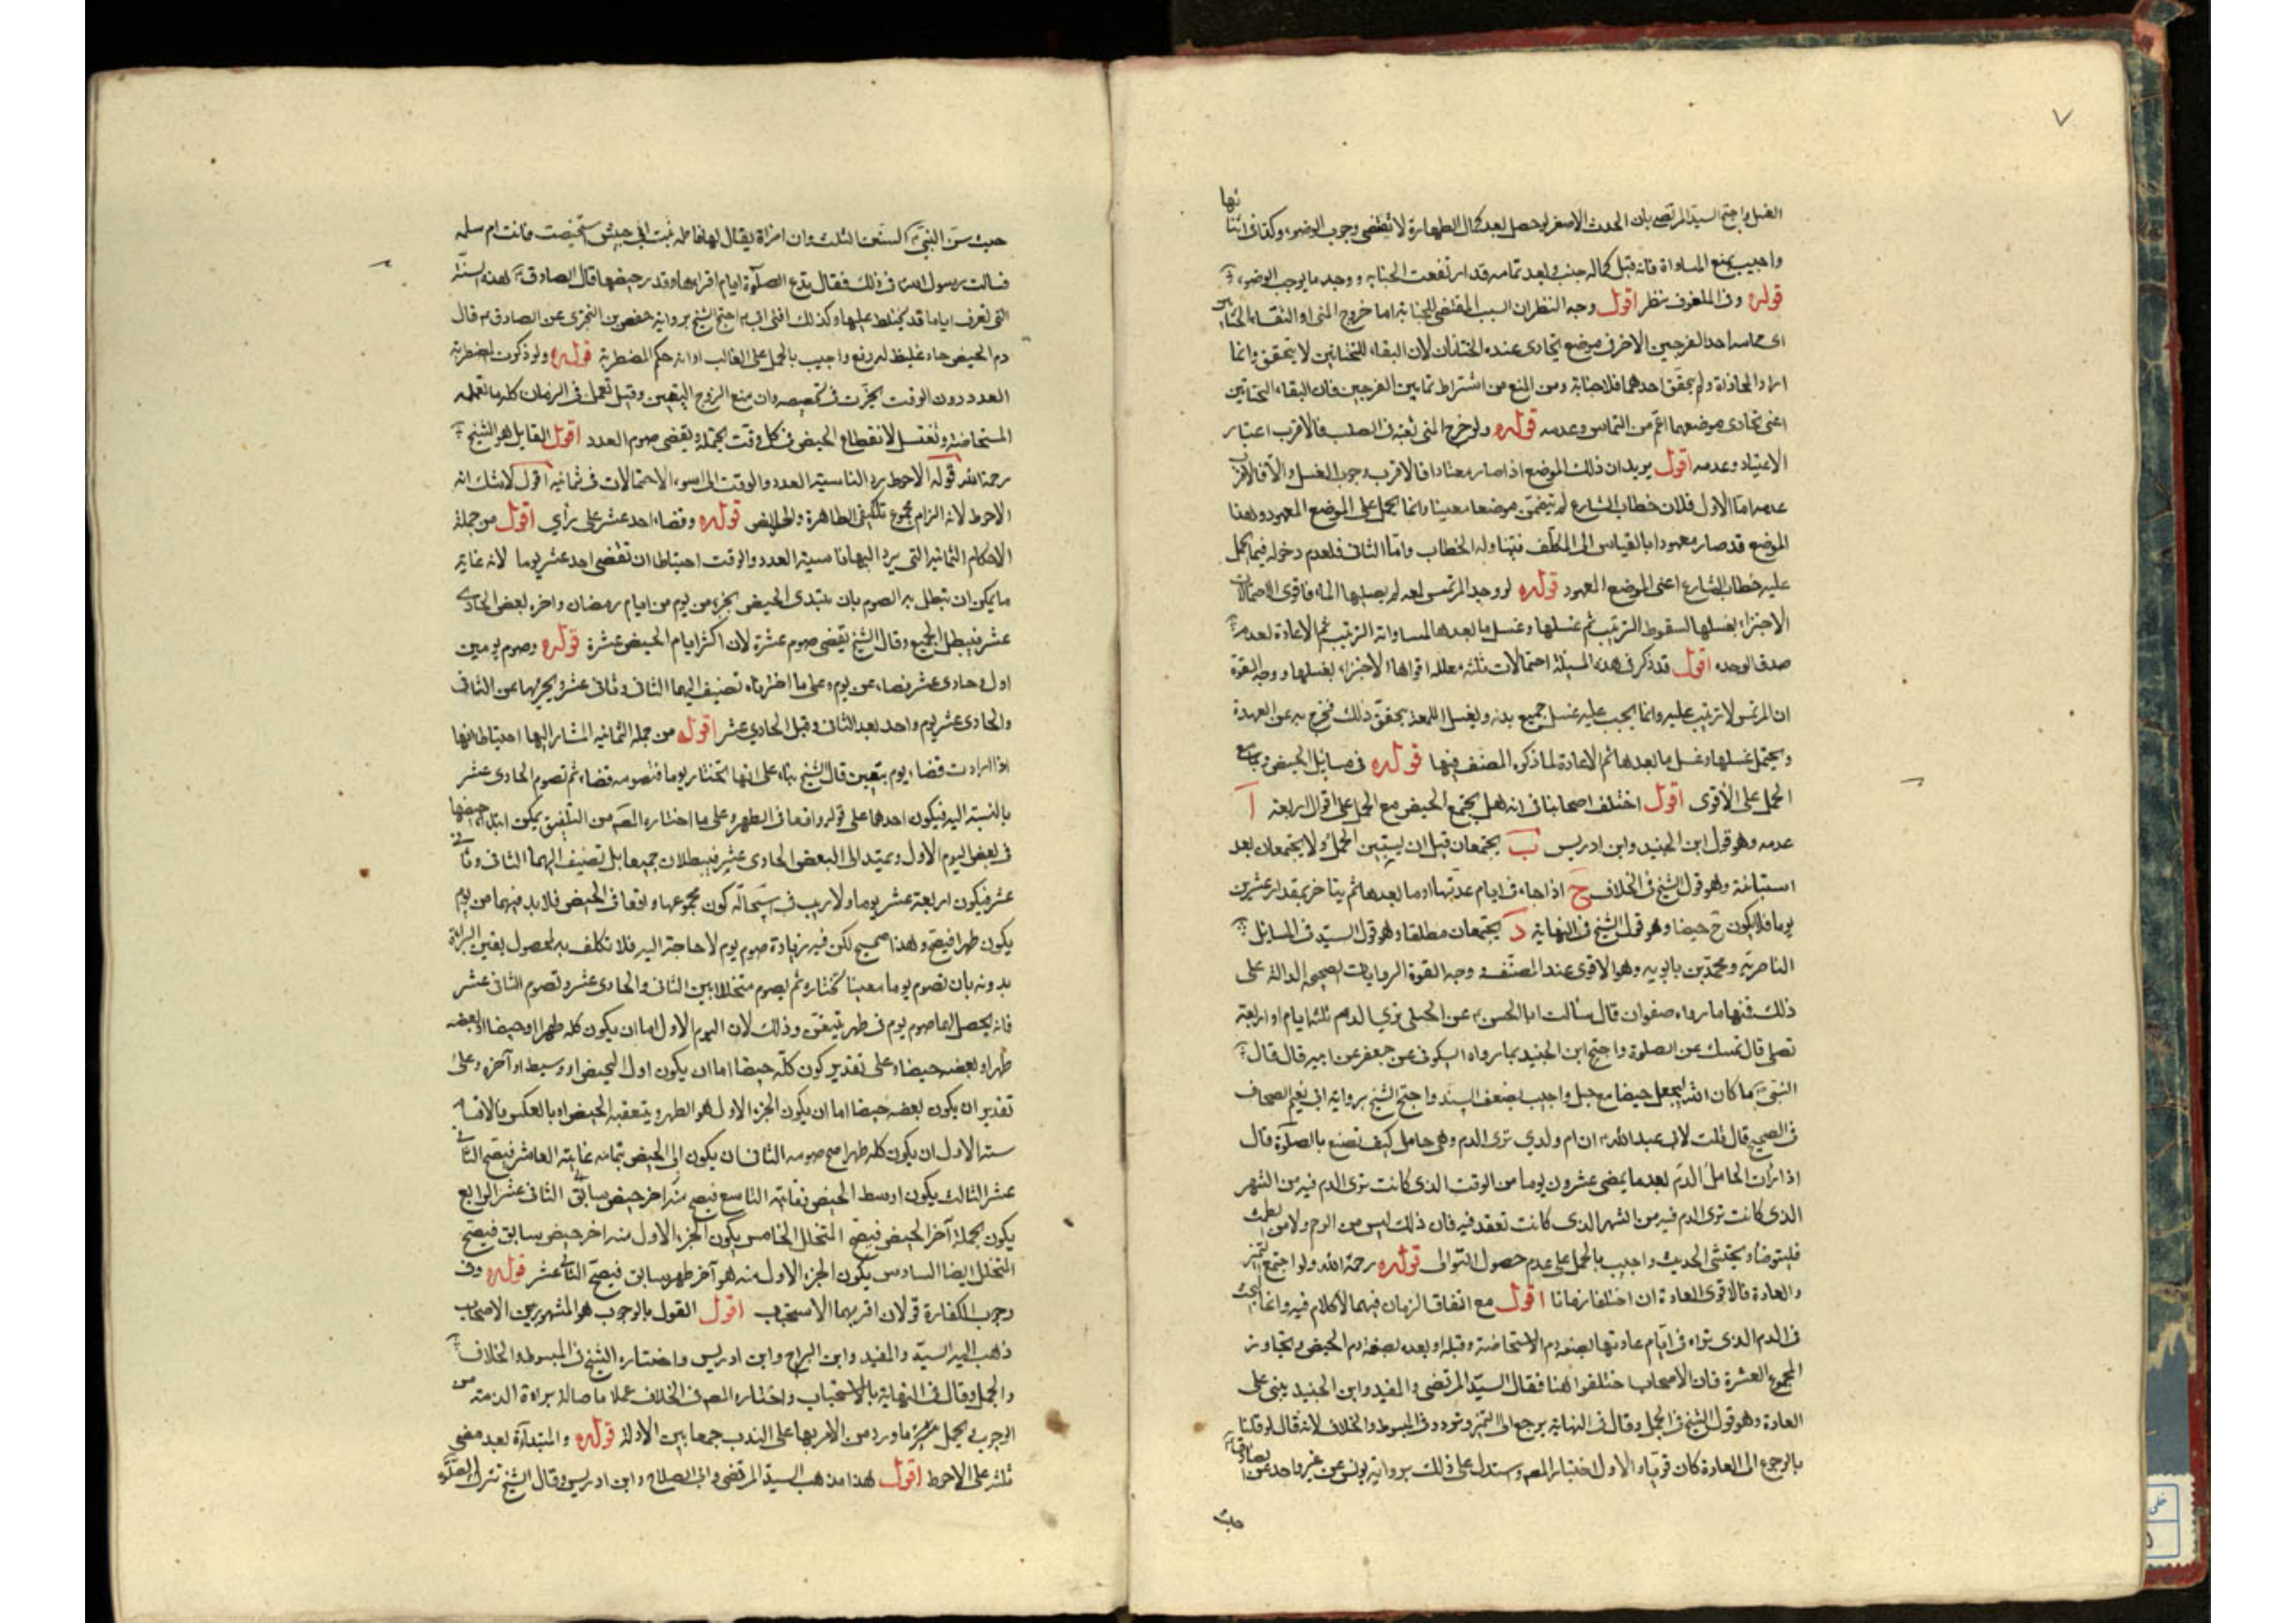 ٧
الغسل واحتج السيد المرتضى بان الحدث الاصغر لو حصل بعد كمال الطهارة لا يقتضى وجوب الوضوء وكذا فى اثنا
ئها
واجيب بمنع المساواة فانه قبل كماله جنب وبعد تمامه قد ارتفعت الجنابه ووجد ما يوجب الوضوء
قوله وفى الملفوف نظر اقول وجه النظر ان السبب المقتضى للجنابة اما خروج المنى او التقاء الختانين
اى مماسه احد الفرجين الاخر فى موضع يتحاذى عنده الختانان لان التقاء الختانين لا يتحقق وانما
اراد المحاذاة ولم يتحقق احدهما فلا جنابة ومن المنع من اشتراط تماس الفرجين فان التقاء الختانين
اعنى تحاذى موضعهما اعم من التماس وعدمه قوله ولو خرج المنى من ثقبة فى الصلب فالاقرب اعتبار
الاعتياد وعدمه اقول يريد ان ذلك الموضع اذا صار معتادا فالاقرب وجوب الغسل والا فالاقرب
عدمه اما الاول فلان خطاب الشارع لم يتضمن موضعا معينا وانما يحمل على الموضع المعهود وهذا
الموضع قد صار معهودا بالقياس الى المكلف فيتناوله الخطاب واما الثانى فلعدم دخوله فيما يحمل
عليه خطاب الشارع اعنى الموضع المعهود قوله لو وجد المرتمس لمعه لم يصلها الماء فاقوى الاحتمالات
الاجتزاء بغسلها لسقوط الترتيب ثم غسلها وغسل ما بعدها لمساواته الترتيب ثم الاعادة لعدم
صدق الوحده اقول قد ذكر فى هذه المسئلة احتمالات ثلثه معلله اقواها الاجتزاء بغسلها ووجه القوة
ان المرتمس لا ترتيب عليه وانما يجب عليه غسل جميع بدنه وبغسل اللمعه يتحقق ذلك فخرج به عن العهدة
ويحتمل غسلها وغسل ما بعدها ثم الاعادة لما ذكره المصنف فيها قوله فى مسايل الحيض ويجامع
الحمل على الاقوى اقول اختلف اصحابنا فى انه هل يجتمع الحيض مع الحمل على اقوال اربعة ا
عدمه وهو قول ابن الجنيد وابن ادريس ب يجتمعان قبل ان يستبين الحمل ولا يجتمعان بعد
استبانته وهو قول الشيخ فى الخلاف ح اذا جاء فى ايام عدتها او ما بعدها ثم يتاخر بمقدار عشرين
يوما فلا يكون ح حيضا وهو قول الشيخ فى النهاية د يجتمعان مطلقا وهو قول السيد فى المسايل
الناصريه ومحمد بن بابويه وهو الاقوى عند المصنف وجه القوة الروايات الصحيحه الدالة على
ذلك فمنها ما رواه صفوان قال سألت ابا الحسن عن الحبلى ترى الدم ثلثه ايام او اربعة
تصلى قال تمسك عن الصلوة واحتج ابن الجنيد بما رواه السكونى عن جعفر عن ابيه قال قال
النبى ما كان الله ليجعل حيضا مع حبل واجيب بضعف السند واحتج الشيخ برواية ابى نعيم الصحاف
فى الصحيح قال قلت لابى عبد الله ان ام ولدى ترى الدم وهى حامل كيف تصنع بالصلوة قال
اذا رات الحامل الدم بعد ما يمضى عشرون يوما من الوقت الذى كانت ترى الدم فيه من الشهر
الذى كانت ترى الدم فيه من الشهر الذى كانت تعقد فيه فان ذلك ليس من الرحم ولا من الطمث
فلتتوضأ وتحتشى الحديث واجيب بالحمل على عدم حصول التوالى قوله رحمه الله ولو اجتمع التميز
والعادة فالاقوى العادة ان اختلفا زمانا اقول مع اتفاق الزمان فيهما لا كلام فيه وانما البحث
فى الدم الذى تراه فى ايام عادتها بصفه دم الاستحاضة وقبله او بعده بصفه دم الحيض وتجاوز
المجموع العشرة فان الاصحاب اختلفوا هنا فقال السيد المرتضى والمفيد وابن الجنيد يبنى على
العادة وهو قول الشيخ فى الجمل وقال فى النهاية يرجع الى التميز وتردد فى المبسوط والخلاف لانه قال لو قلنا
بالرجوع الى العادة كان قويا والاول اختيار المصـ وستدل على ذلك برواية يونس عن غير واحد عن الصادق
حيث
حيث سن النبى السنن الثلث وان امراة يقال لها فاطمه بنت ابى حبيش استحيضت فاتت ام سلمه
فسالت رسول الله فى ذلك فقال تدع الصلوة ايام اقرائها وقدر حيضها قال الصادق هذه سنة
التى تعرف اياما قد يختلط عليها وكذلك افتى ابى احتج الشيخ برواية حفص بن البخترى عن الصادق قال
دم الحيض حار غليظ له دفع واجيب بالحمل على الغالب او انه حكم المضطربة قوله ولو ذكرت المضطربة
العدد دون الوقت تخيرت فى تخصيصه وان منع الزوج التعيين وقيل تعمل فى الزمان كله ما تعمله
المستحاضة وتغتسل لانقطاع الحيض فى كل وقت يحتمله وتقضى صوم العدد اقول القايل هو الشيخ
رحمه الله قوله الاحوط رد الناسية العدد والوقت الى اسوء الاحتمالات فى ثمانيه اقول لا شك انه
الاحوط لانه الزام مجموع تكليفى الطاهرة والحايض قوله وقضاء احد عشر على رأي اقول من جملة
الاحكام الثمانيه التى يرد اليها ناسية العدد والوقت احتياطا ان تقضى احد عشر يوما لانه غاية
ما يمكن ان يتطل به الصوم بان يبتدى الحيض بجزء من يوم من ايام رمضان واخره بعض الحادى
عشر فيبطل الجميع وقال الشيخ تقضى صوم عشرة لان اكثر ايام الحيض عشرة قوله وصوم يومين
اول وحادى عشر قضاء عن يوم وعلى ما اخترناه تضيف اليهما الثانى وثانى عشر ويجزيها عن الثانى
والحادى عشر يوم واحد بعد الثانى وقبل الحادى عشر اقول من جمله الثمانيه المشار اليها احتياطا انها
اذا ارادت قضاء يوم بتعين قال الشيخ بناء على انها تختار يوما فتصومه قضاء ثم تصوم الحادى عشر
بالنسبة اليه فيكون احدهما على قوله واقعا فى الطهر وعلى ما اختاره المصـ من التلفيق يمكن ابتداء حيضها
فى بعض اليوم الاول ويمتد الى البعض الحادى عشر فيبطلان جميعا بل تضيف اليهما الثانى وثانى
عشر فيكون اربعة عشر يوما ولا ريب فى استحالة كون مجموعها واقعا فى الحيض فلا بد فيهما من يوم
يكون طهرا فيصح وهذا صحيح لكن فيه زيادة صوم يوم لا حاجة اليه فلا تكلف به لحصول يقين البرائة
بدونه بان تصوم يوما معينا تختاره ثم يصوم متخللا بين الثانى والحادى عشر وتصوم الثانى عشر
فانه يحصل لها صوم يوم فى طهر بيقين وذلك لان اليوم الاول اما ان يكون كله طهرا او حيضا او بعضه
طهرا وبعضه حيضا وعلى تقدير كون كله حيضا اما ان يكون اول الحيض او وسيط او آخره وعلى
تقدير ان يكون بعضه حيضا اما ان يكون الجزء الاول هو الطهر ويتعقبه الحيض او بالعكس فالاقسام
سته الاول ان يكون كله طهرا صح صومه الثانى ان يكون اول الحيض بتمامه غايته العاشر فيصح الثانى
عشر الثالث يكون اوسط الحيض نغايته التاسع فيصح من اخر حيض سابق الثانى عشر الرابع
يكون بجملة آخر الحيض فيصح المتخلل الخامس يكون الجزء الاول منه اخر حيض سابق فيصح
المتخلل ايضا السادس يكون الجزء الاول منه هو آخر طهر سابق فيصح الثانى عشر قوله وفى
وجوب الكفارة قولان اقربهما الاستحباب اقول القول بالوجوب هو المشهور بين الاصحاب
ذهب اليه السيد والمفيد وابن البراج وابن ادريس واختاره الشيخ فى المبسوط والخلاف
والجمل وقال فى النهاية بالاستحباب واختاره المصـ فى الخلاف عملا باصالة براءة الذمه من
الوجوب يحمل ما ورد من الامر بها على الندب جمعا بين الادلة قوله والمبتدأة بعد مضى
ثلثه على الاحوط اقول هذا مذهب السيد المرتضى وابى الصلاح وابن ادريس وقال الشيخ تترك الصلوة